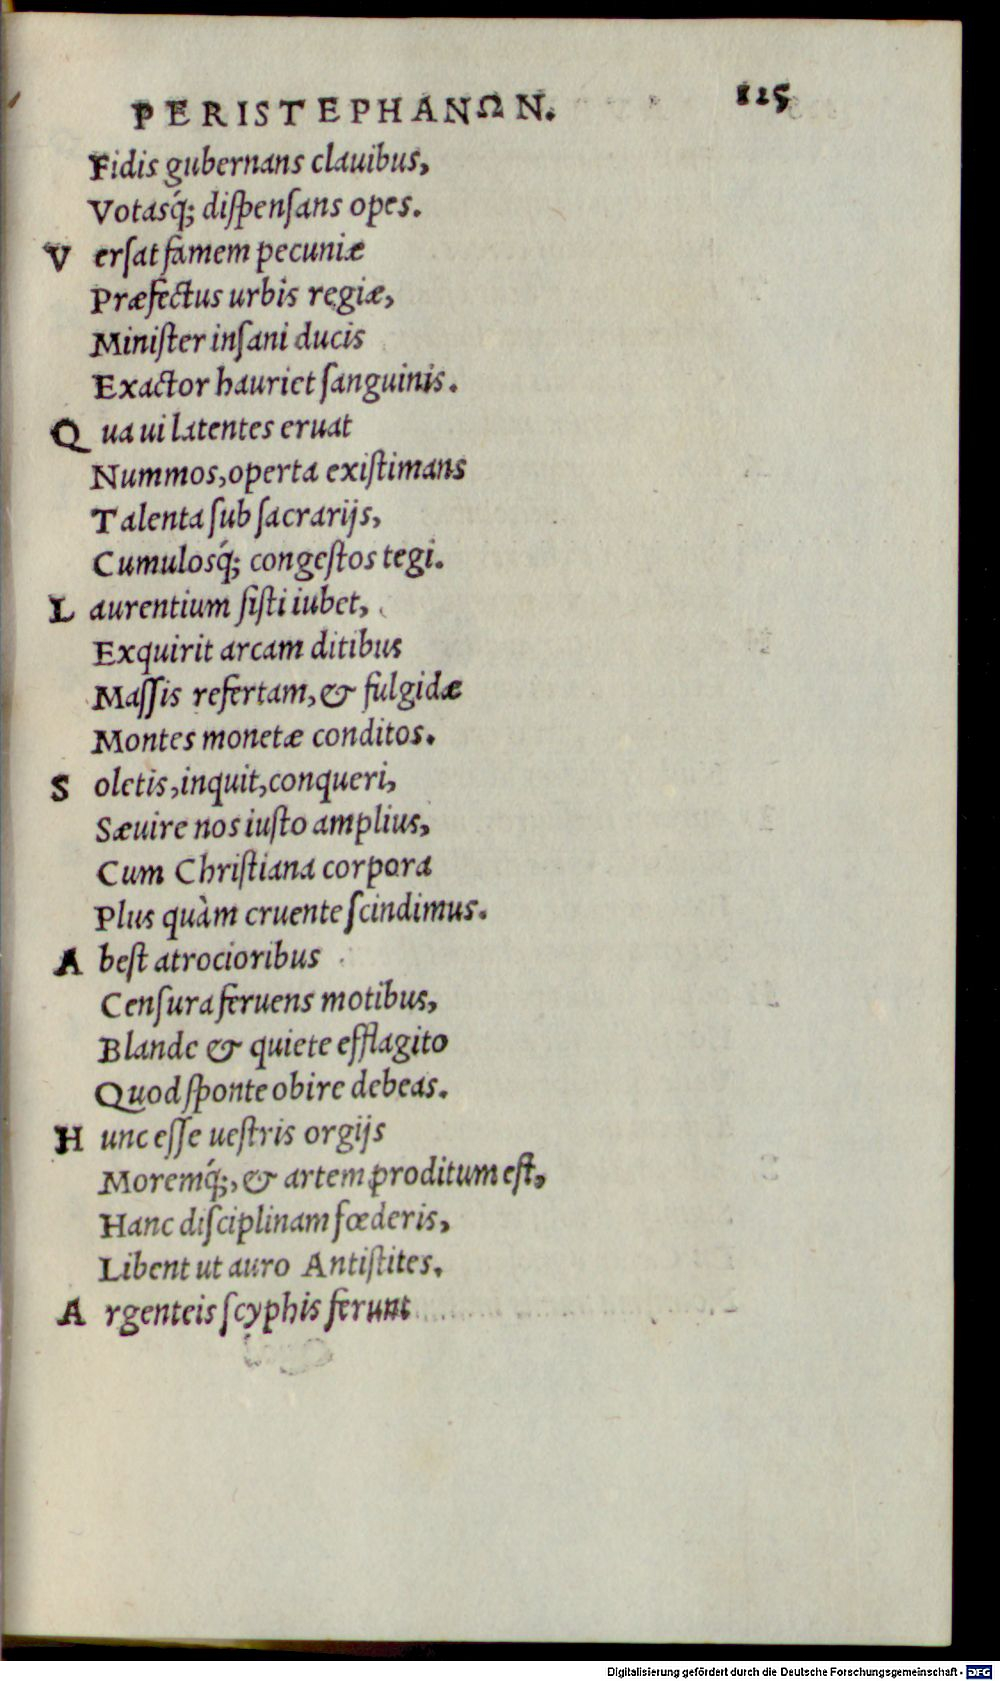 PERISTEPHANΩN. 125
Fidis gubernans clauibus,
Votasq́; diſpenſans opes.
V erſat famem pecuniæ
Præfectus urbis regiæ,
Miniſter inſani ducis
Exactor hauriet ſanguinis.
Q ua ui latentes eruat
Nummos, operta exiſtimans
Talenta ſub ſacrarijs,
Cumulosq́; congeſtos tegi.
L aurentium ſiſti iubet,
Exquirit arcam ditibus
Maſſis refertam, & fulgidæ
Montes monetæ conditos.
S oletis, inquit, conqueri,
Sæuire nos iuſto amplius,
Cum Chriſtiana corpora
Plus quàm cruente ſcindimus.
A beſt atrocioribus
Cenſura feruens motibus,
Blande & quiete efflagito
Quod ſponte obire debeas.
H unc eſſe ueſtris orgijs
Moremq́;, & artem proditum eſt,
Hanc diſciplinam fœderis,
Libent ut auro Antiſtites.
A rgenteis ſcyphis ferunt
Digitalisierung gefördert durch die Deutsche Forschungsgemeinschaft - DFG